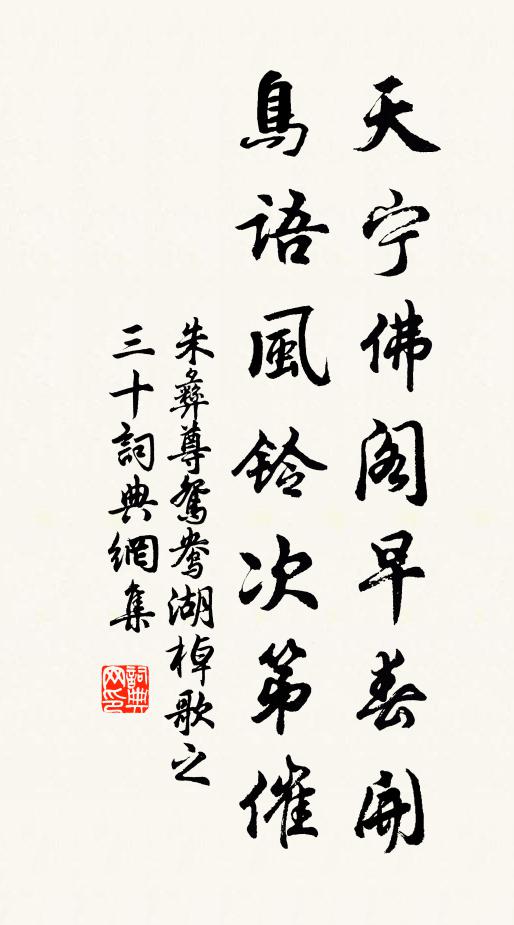 天宁佛阁早春開
鳥語風鈴次第催
朱彝尊鴛鴦湖棹歌之
三十詞典網集
詞典网印